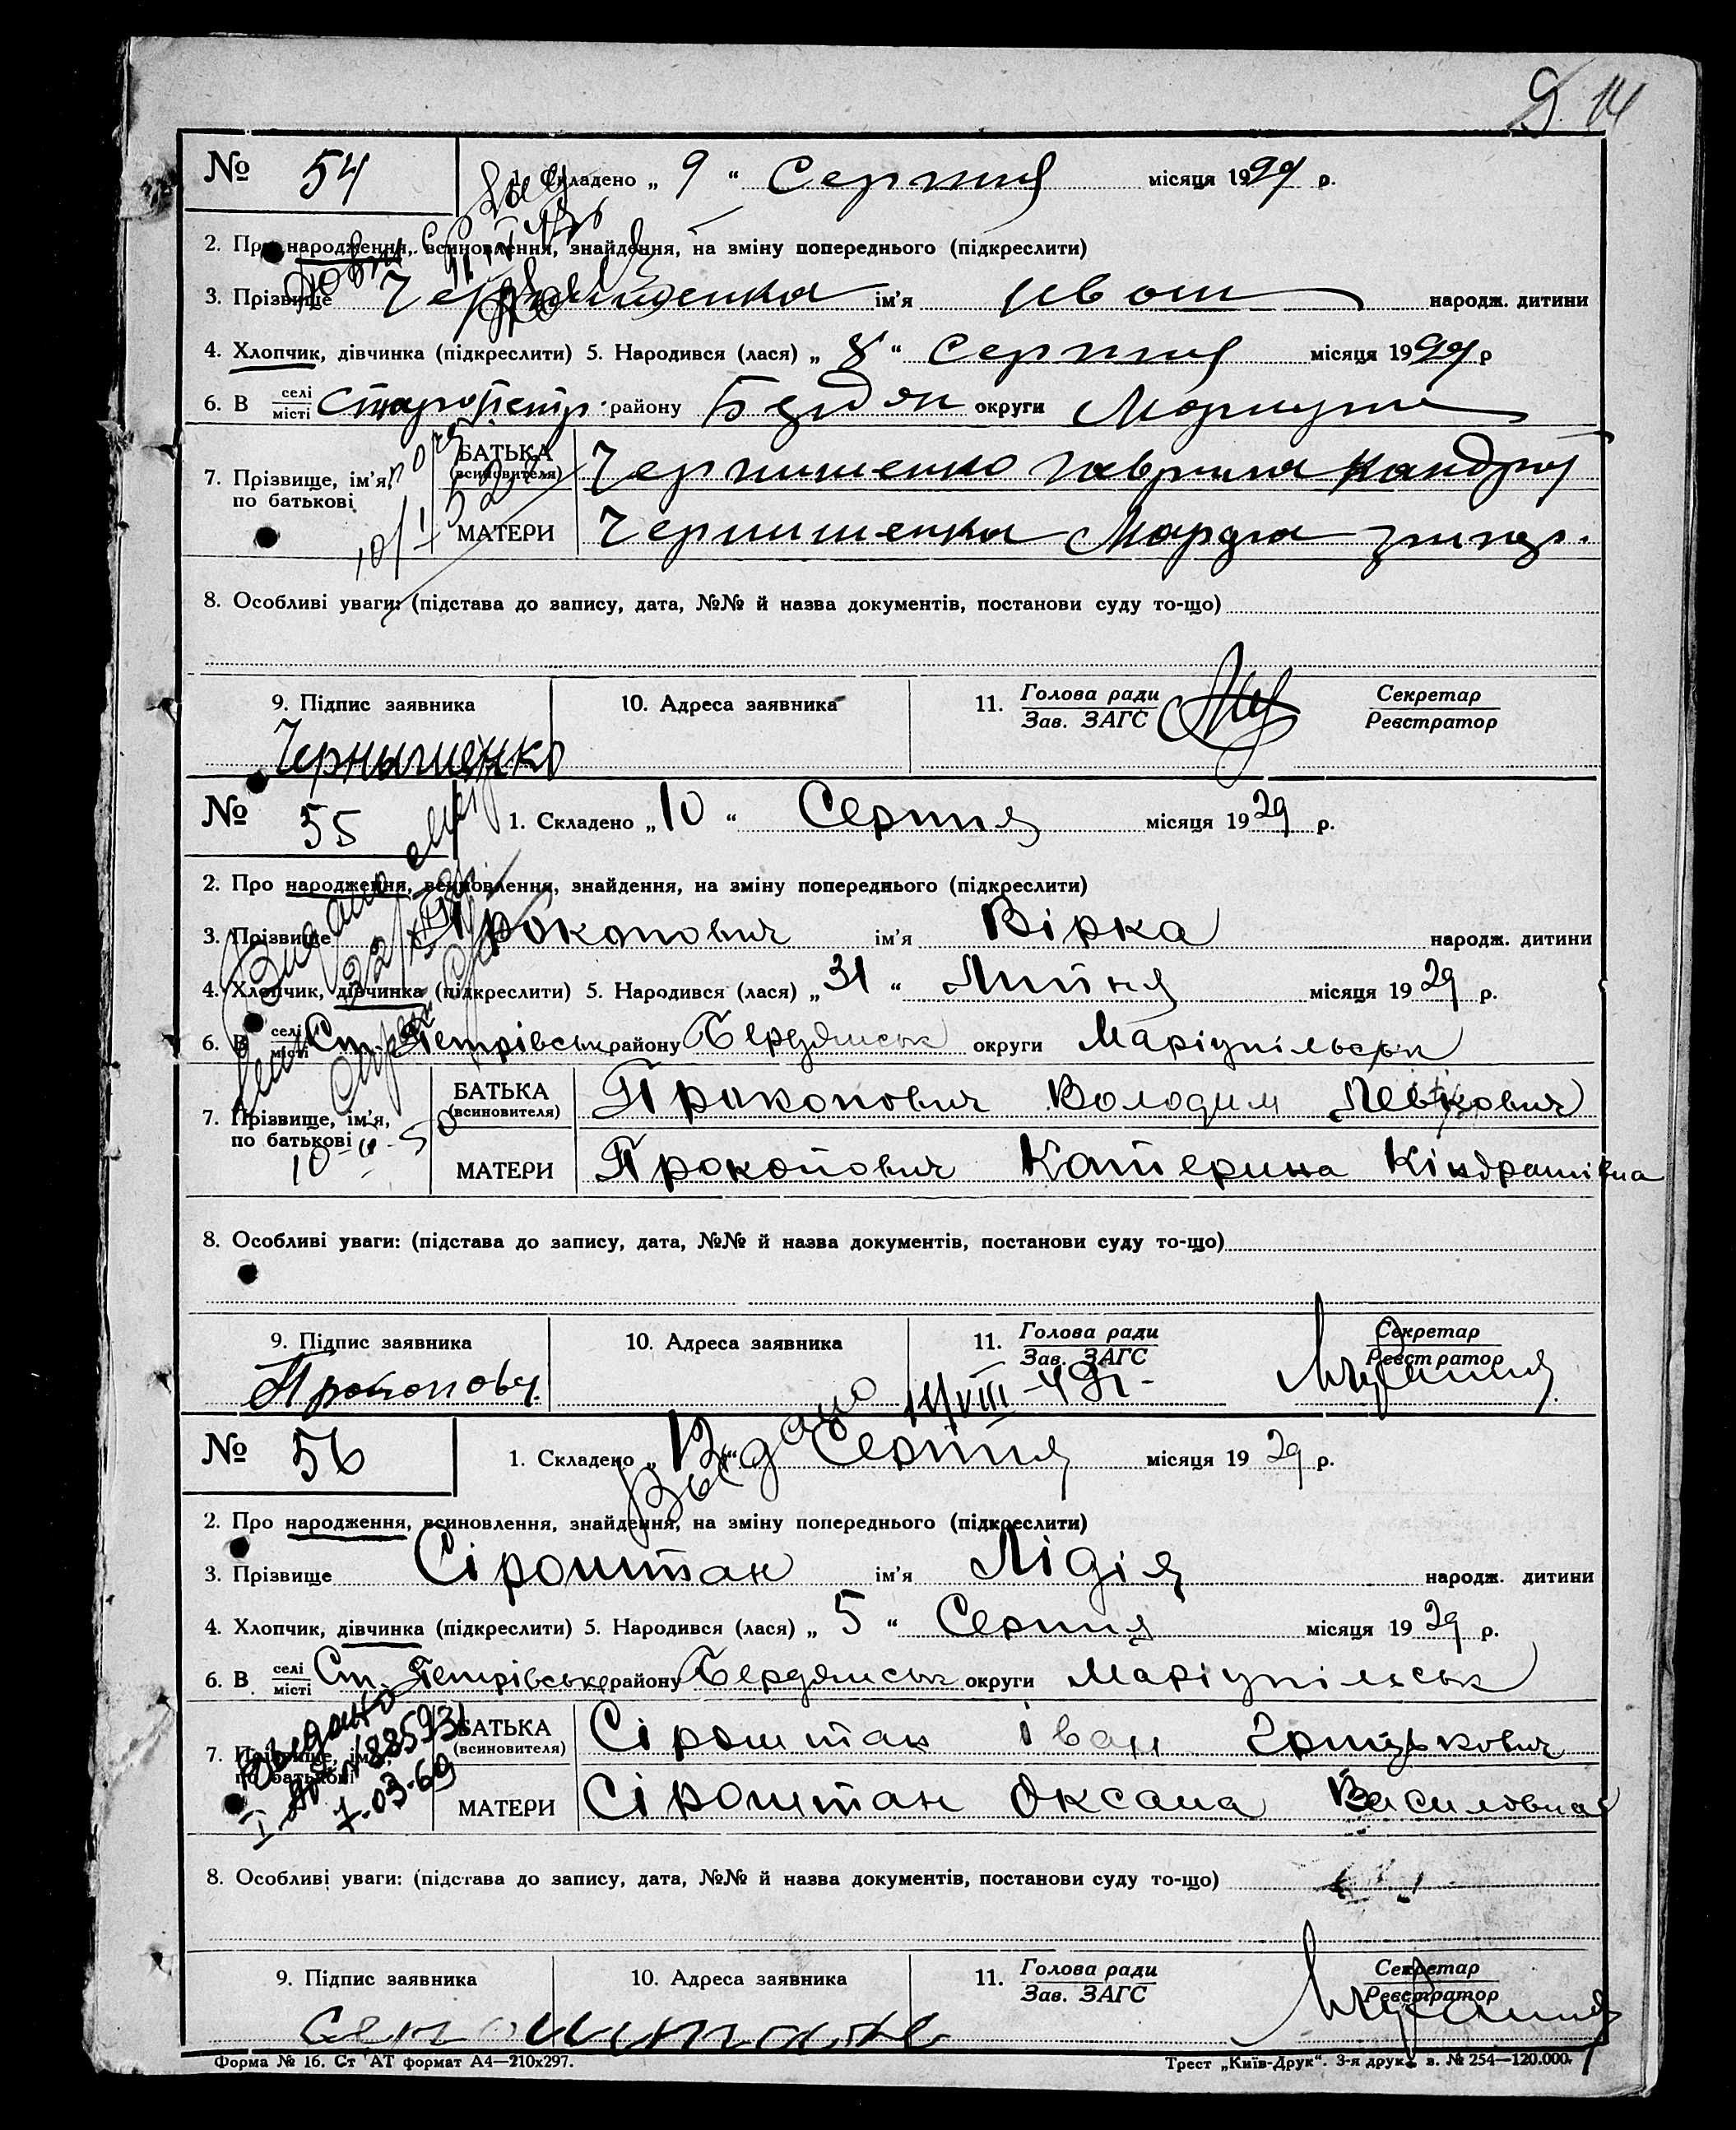 14
№ 54
1. Складено „ 9 “ Серпня місяця 1929 р.
2. Про народження, всиновлення, знайдення, на зміну попереднього (підкреслити)
3. Прізвище ім'я Иван народж. дитини
4. Хлопчик, дівчинка (підкреслити) 5. Народився (лася) „ 8 “ Серпня місяця 1929 р
6. В селі/місті СтароПетр. району Бердян округи Мариуп
7. Прізвище, ім'я, по батькові
БАТЬКА (всиновителя) Чернишенко Гаврила Кандрат
МАТЕРИ Чернишенка Марфа
8. Особливі уваги: (підстава до запису, дата, №№ й назва документів, постанови суду то-що)
9. Підпис заявника 10. Адреса заявника 11. Голова ради / Зав. ЗАГС Секретар / Реєстратор
Чернышенко
№ 55
1. Складено „ 10 “ Серпня місяця 1929 р.
2. Про народження, всиновлення, знайдення, на зміну попереднього (підкреслити)
3. Прізвище Прокопович ім'я Вірка народж. дитини
4. Хлопчик, дівчинка (підкреслити) 5. Народився (лася) „ 31 “ Липня місяця 1929 р.
6. В селі/місті Ст. Петрівськ району Бердянськ округи Маріупільськ
7. Прізвище, ім'я, по батькові
БАТЬКА (всиновителя) Прокопович Володим Левкович
МАТЕРИ Прокопович Катерина Кіндратівна
8. Особливі уваги: (підстава до запису, дата, №№ й назва документів, постанови суду то-що)
9. Підпис заявника 10. Адреса заявника 11. Голова ради / Зав. ЗАГС Секретар / Реєстратор
Прокопович
Выдано 14/VIII-49г-
№ 56
1. Складено „ 12 “ Серпня місяця 1929 р.
2. Про народження, всиновлення, знайдення, на зміну попереднього (підкреслити)
3. Прізвище Сіроштан ім'я Лідія народж. дитини
4. Хлопчик, дівчинка (підкреслити) 5. Народився (лася) „ 5 “ Серпня місяця 1929 р.
6. В селі/місті Ст. Петрівськ району Бердянськ округи Маріупільськ
7. Прізвище, ім'я, по батькові
БАТЬКА (всиновителя) Сіроштан Іван
МАТЕРИ Сіроштан Оксана Василівна
Выдано
7-03-69
8. Особливі уваги: (підстава до запису, дата, №№ й назва документів, постанови суду то-що)
9. Підпис заявника 10. Адреса заявника 11. Голова ради / Зав. ЗАГС Секретар / Реєстратор
Форма № 16. Ст АТ формат А4—210х297. Трест „Київ-Друк“. 3-я друк. з. № 254—120.000.